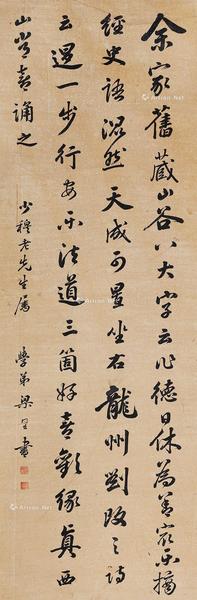 余家舊藏山谷八大字云作德日休為善最樂摘
經史語混然天成可置坐右龍州劉改之詩
云退一步行安樂法道三箇好喜歡緣真西
山常喜誦之
少穆老先生屬 學弟梁 書